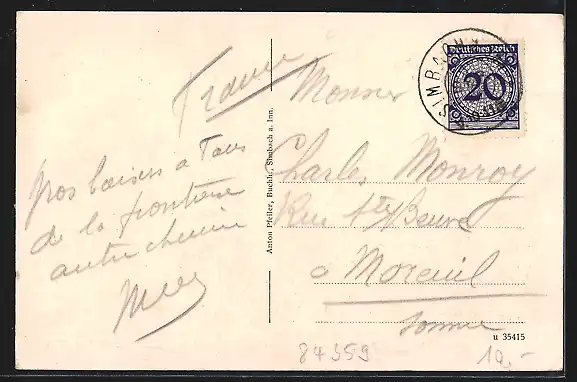 France
nos baisers à Tous
de la frontière
autrichienne
Deutsches Reich
20
SIMBACH
Monsieur
Charles Monroy
Rue Ste Beuve
a Moreuil
Somme
Anton Pfeiler, Buchh., Simbach a. Inn.
u 35415
84359
10,-